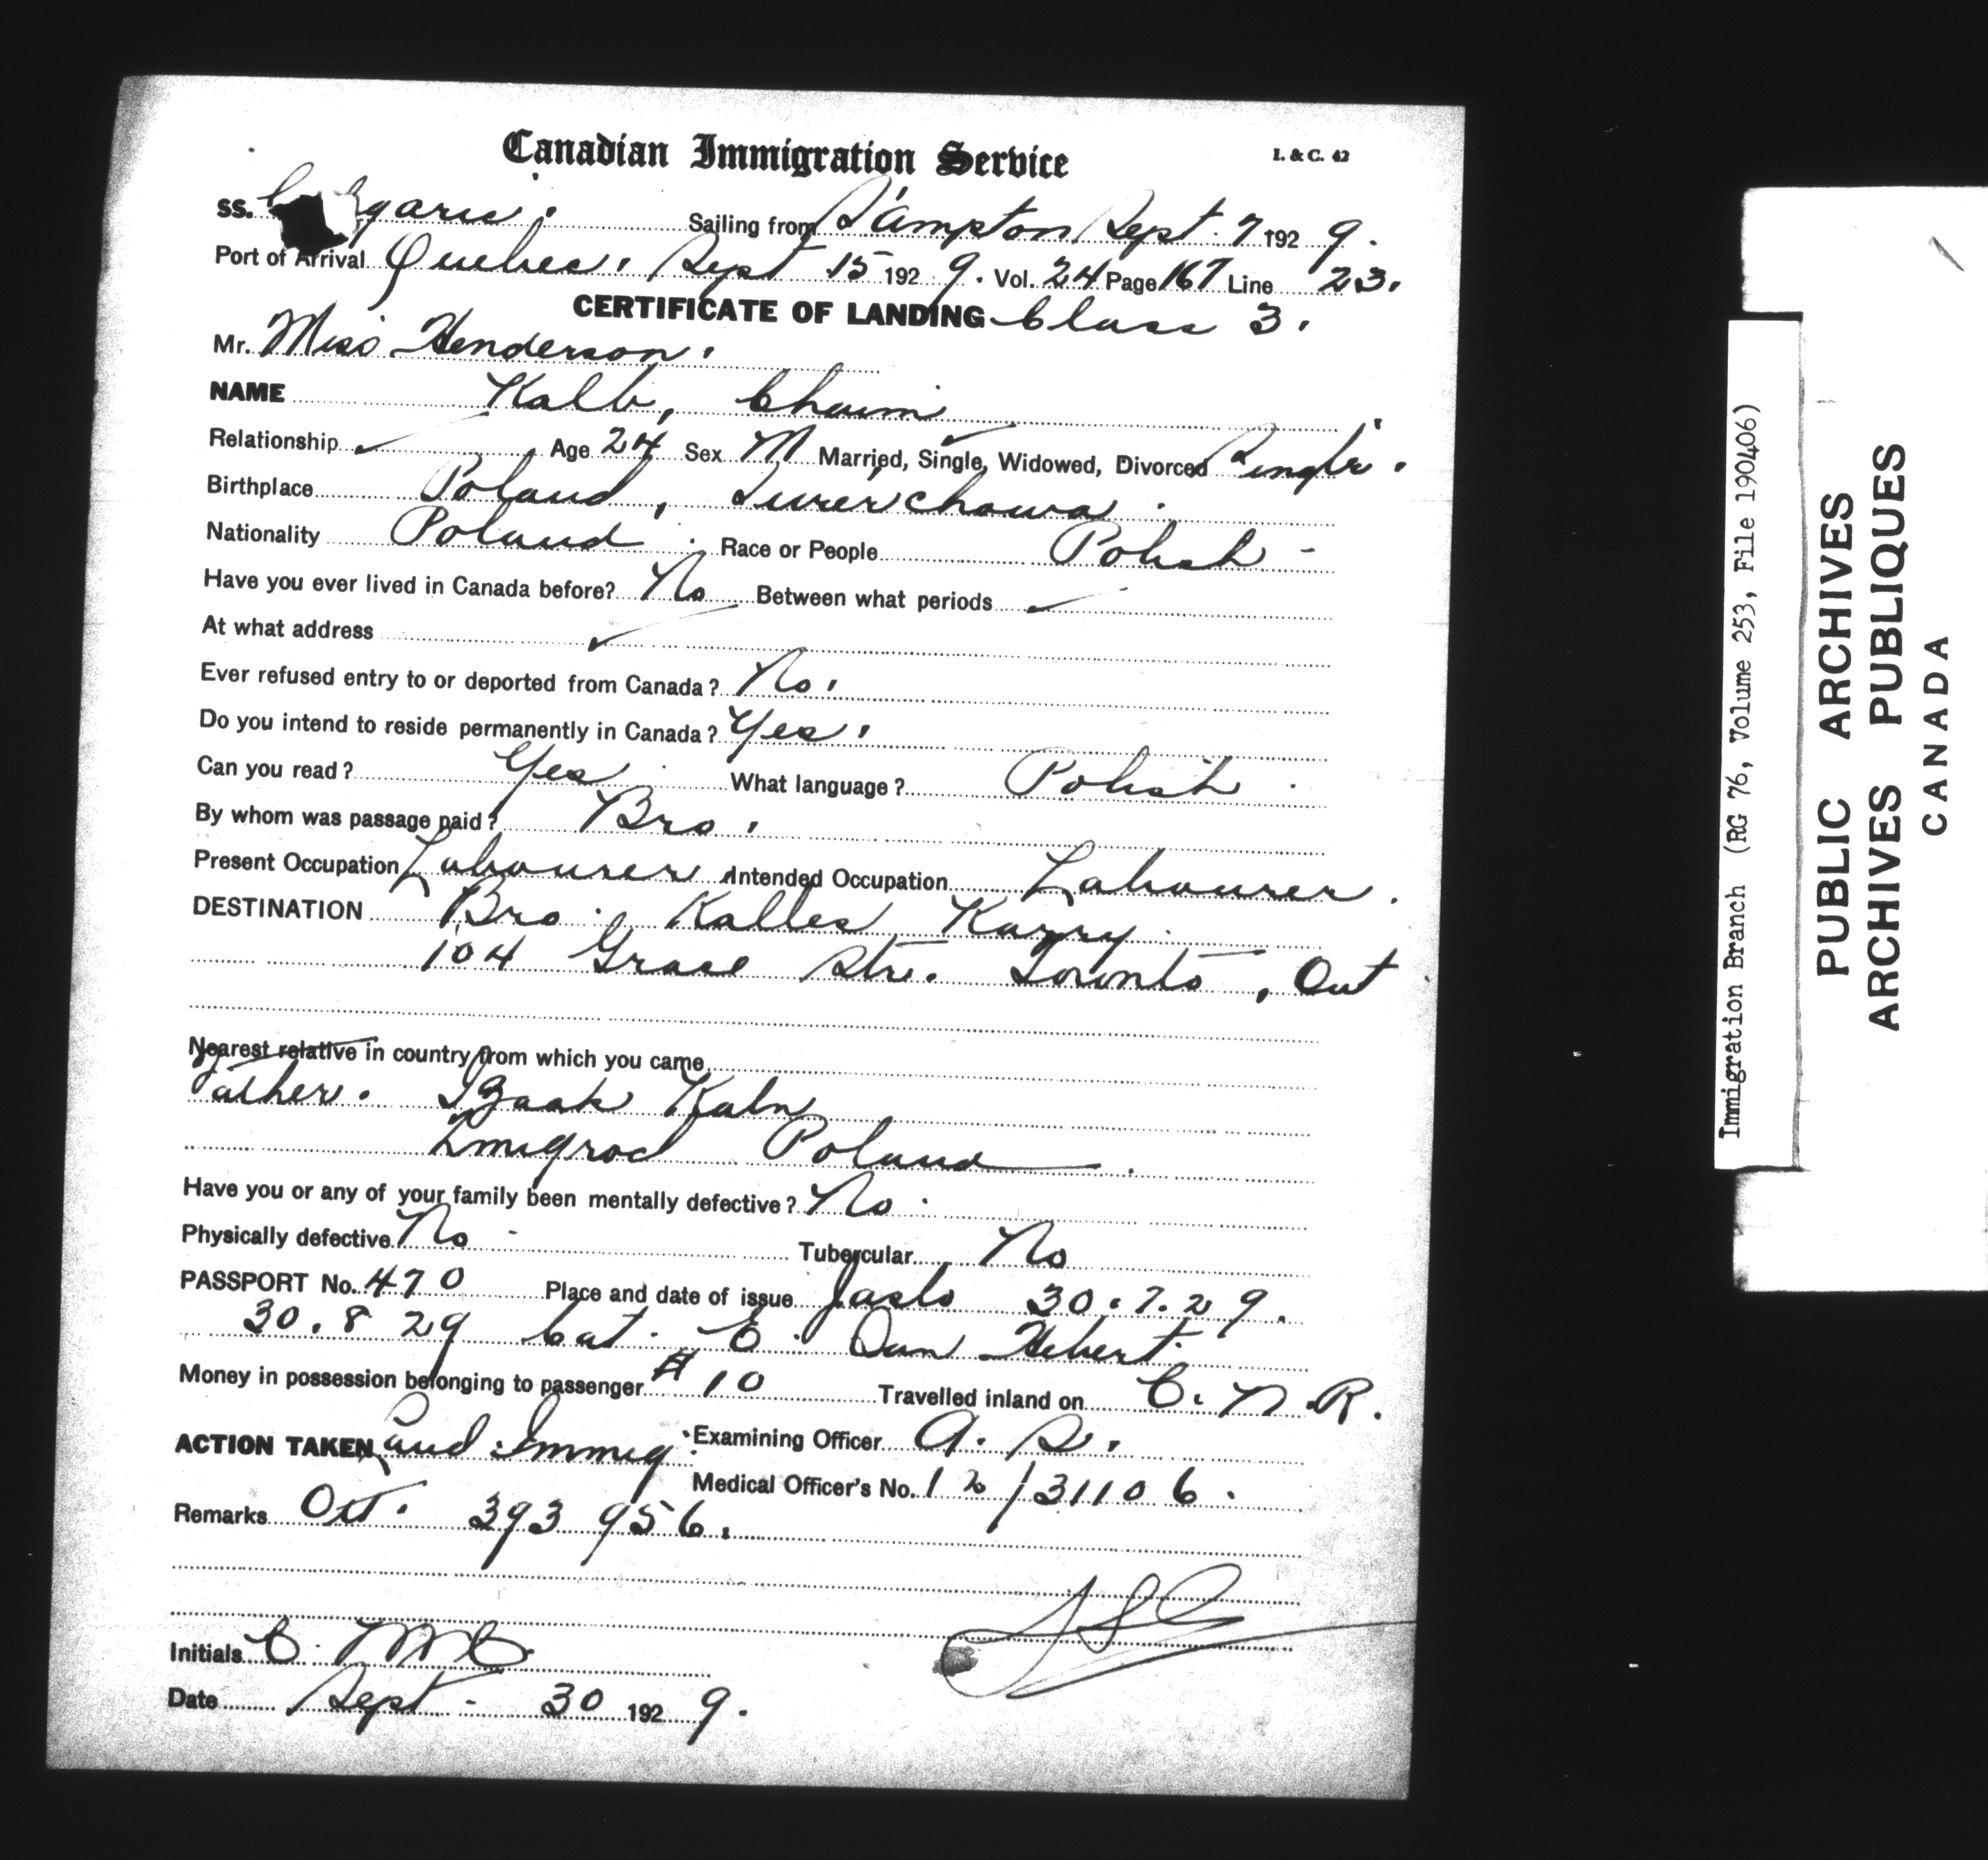 Canadian Immigration Service
I. & C. 42
SS. Sailing from S'ampton Sept. 7 1929.
Port of Arrival Quebec. Sept 15 1929. Vol. 24 Page 167 Line 23.
CERTIFICATE OF LANDING Class 3.
Mr. Miss Henderson.
NAME Kalb, Chaim
Relationship Age 24 Sex M Married, Single, Widowed, Divorced Single.
Birthplace Poland,
Nationality Poland. Race or People Polish -
Have you ever lived in Canada before? No Between what periods
At what address
Ever refused entry to or deported from Canada? No.
Do you intend to reside permanently in Canada? Yes.
Can you read? Yes What language? Polish.
By whom was passage paid? Bro.
Present Occupation Labourer Intended Occupation Labourer.
DESTINATION Bro. Kalles Karry
104 Grace Str. Toronto, Ont
Nearest relative in country from which you came
Father. Izaak
Zmigrod Poland.
Have you or any of your family been mentally defective? No.
Physically defective No - Tubercular No
PASSPORT No. 470 Place and date of issue Jaslo 30.7.29.
30.8 29 Cat. C. Dan Hebert.
Money in possession belonging to passenger $10 Travelled inland on C.N.R.
ACTION TAKEN Land Immig. Examining Officer A. S.
Medical Officer's No. 12/31106.
Remarks Ott. 393956.
Initials C. McC.
Date Sept - 30 1929.
Immigration Branch (RG 76, Volume 253, File 190406)
PUBLIC ARCHIVES
ARCHIVES PUBLIQUES
CANADA